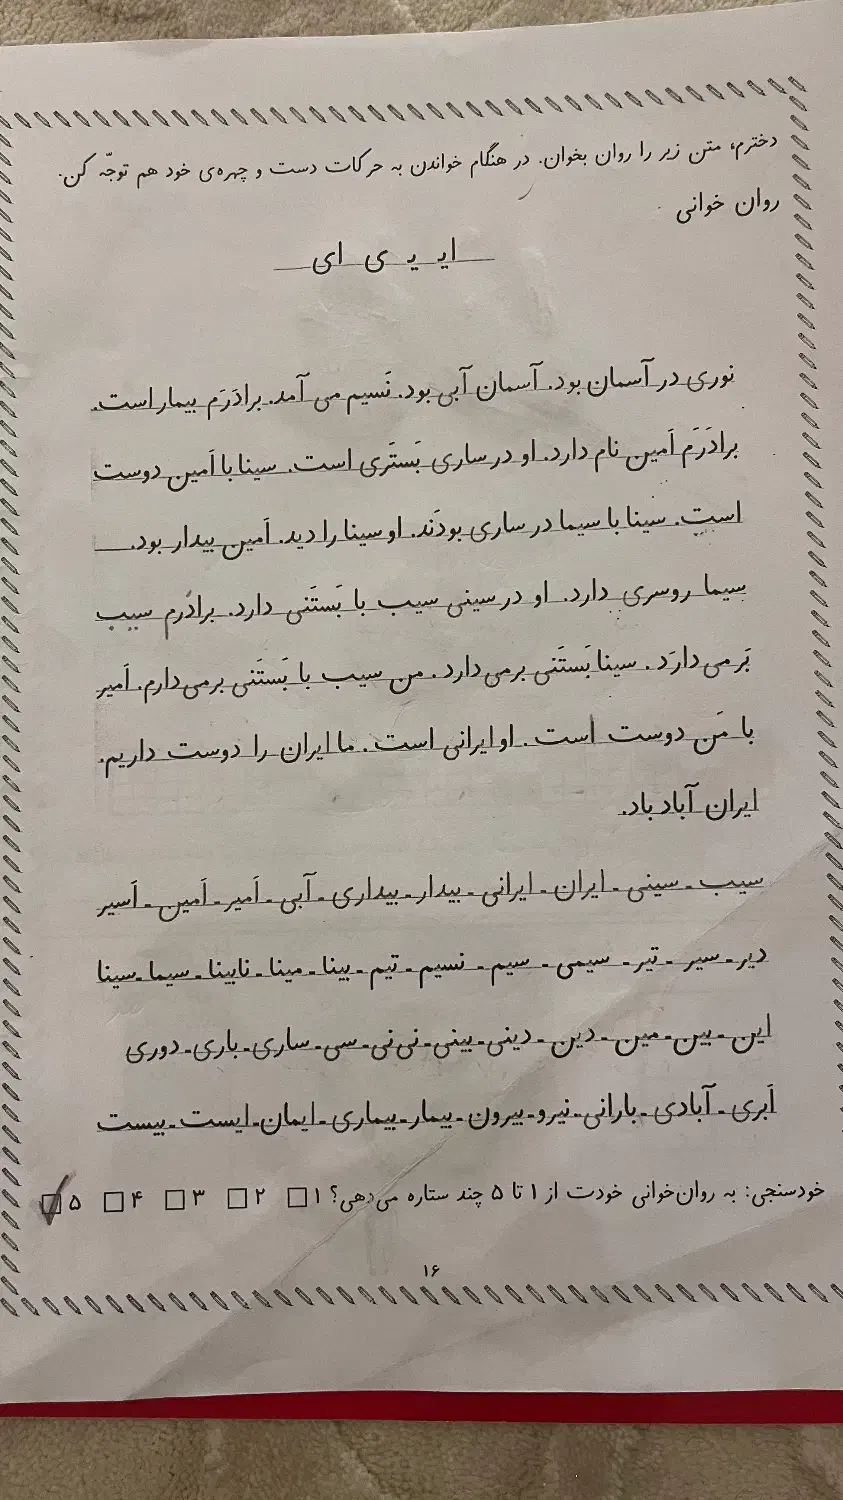 دخترم، متن زیر را روان بخوان. در هنگام خواندن به حرکات دست و چهره‌ی خود هم توجّه کن.
روان خوانی
ایـ ـیـ ـی ای
نوری در آسمان بود. آسمان آبی بود. نَسیم می آمد. برادَرَم بیمار است.
برادَرَم اَمین نام دارد. او در ساری بَستَری است. سینا با اَمین دوست
است. سینا با سیما در ساری بودَند. او سینا را دید. اَمین بیدار بود.
سیما روسری دارد. او در سینی سیب با بَستَنی دارد. برادَرم سیب
بَر می دارَد. سینا بَستَنی برمی دارد. من سیب با بَستَنی برمی دارم. اَمیر
با مَن دوست است. او ایرانی است. ما ایران را دوست داریم.
ایران آباد باد.
سیب - سینی - ایران - ایرانی - بیدار - بیداری - آبی - اَمیر - اَمین - اَسیر
دیر - سیر - تیر - سیمی - سیم - نسیم - تیم - بینا - مینا - نابینا - سیما - سینا
این - بین - مین - دین - دینی - بینی - نی نی - سی - ساری - باری - دوری
اَبری - آبادی - بارانی - نیرو - بیرون - بیمار - بیماری - ایمان - ایست - بیست
خودسنجی: به روان‌خوانی خودت از ۱ تا ۵ چند ستاره می‌دهی؟ ۱□ ۲□ ۳□ ۴□ ۵□
۱۶